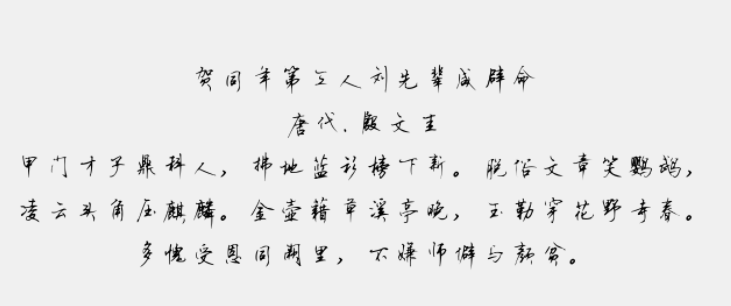 贺同年第三人刘先辈咸辟命
唐代.殷文圭
甲门才子鼎科人，拂地蓝衫榜下新。脱俗文章笑鹦鹉，
凌云头角压麒麟。金壶藉草溪亭晚，玉勒穿花野寺春。
多愧受恩同阙里，不嫌师僻与颜贫。